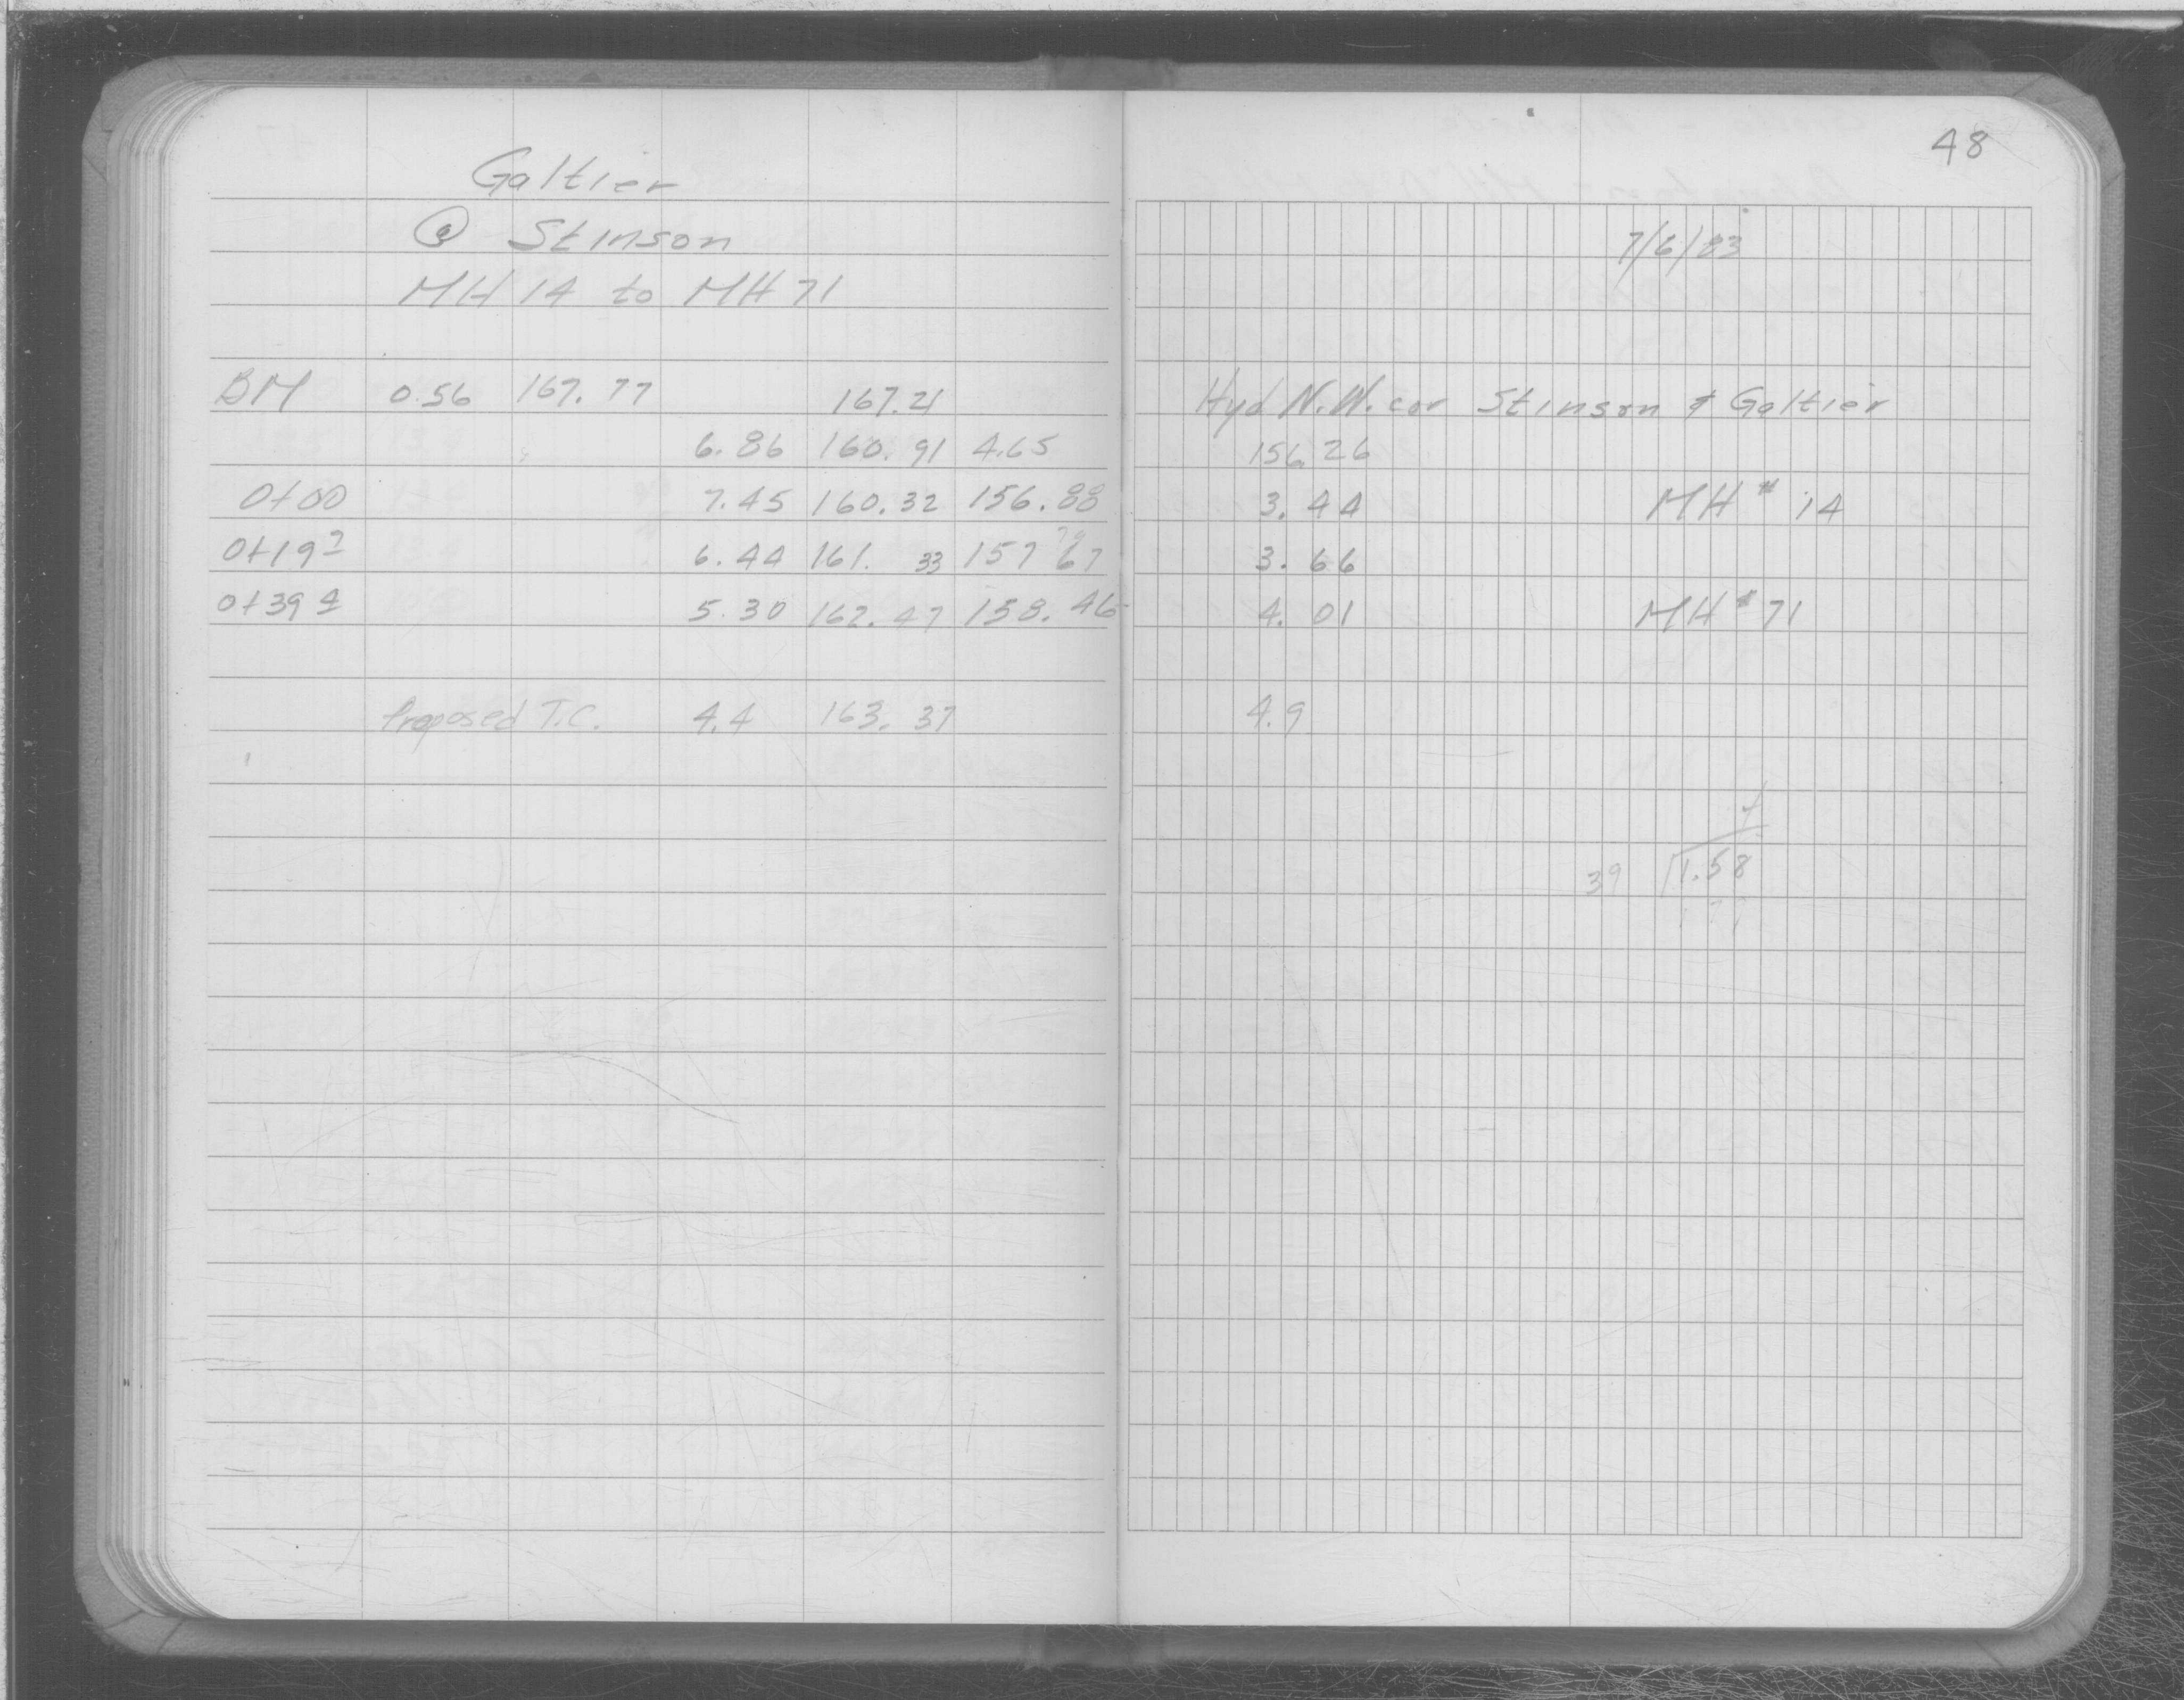 48
Galtier
@ Stinson
7/6/83
MH 14 to MH 71
BM 0.56 167.77 167.21 Hyd N.W. cor Stinson & Galtier
6.86 160.91 4.65 156.26
0+00 7.45 160.32 156.88 3.44 MH # 14
0+19 7 6.44 161.33 157 67 3.66
0+39 4 5.30 162.47 158.46 4.01 MH # 71
Proposed T.C. 4.4 163.37 4.9
39 1.58